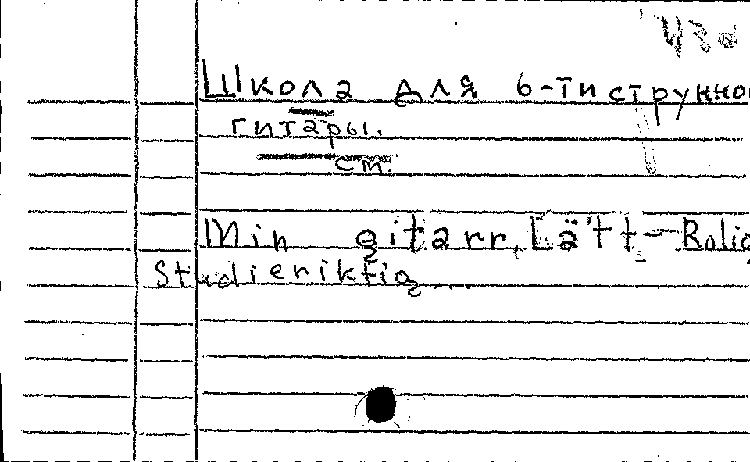 Школа для 6-тиструнно
гитары.
ст.
Min gitarr, Lätt - Rolig
Studieriktig....